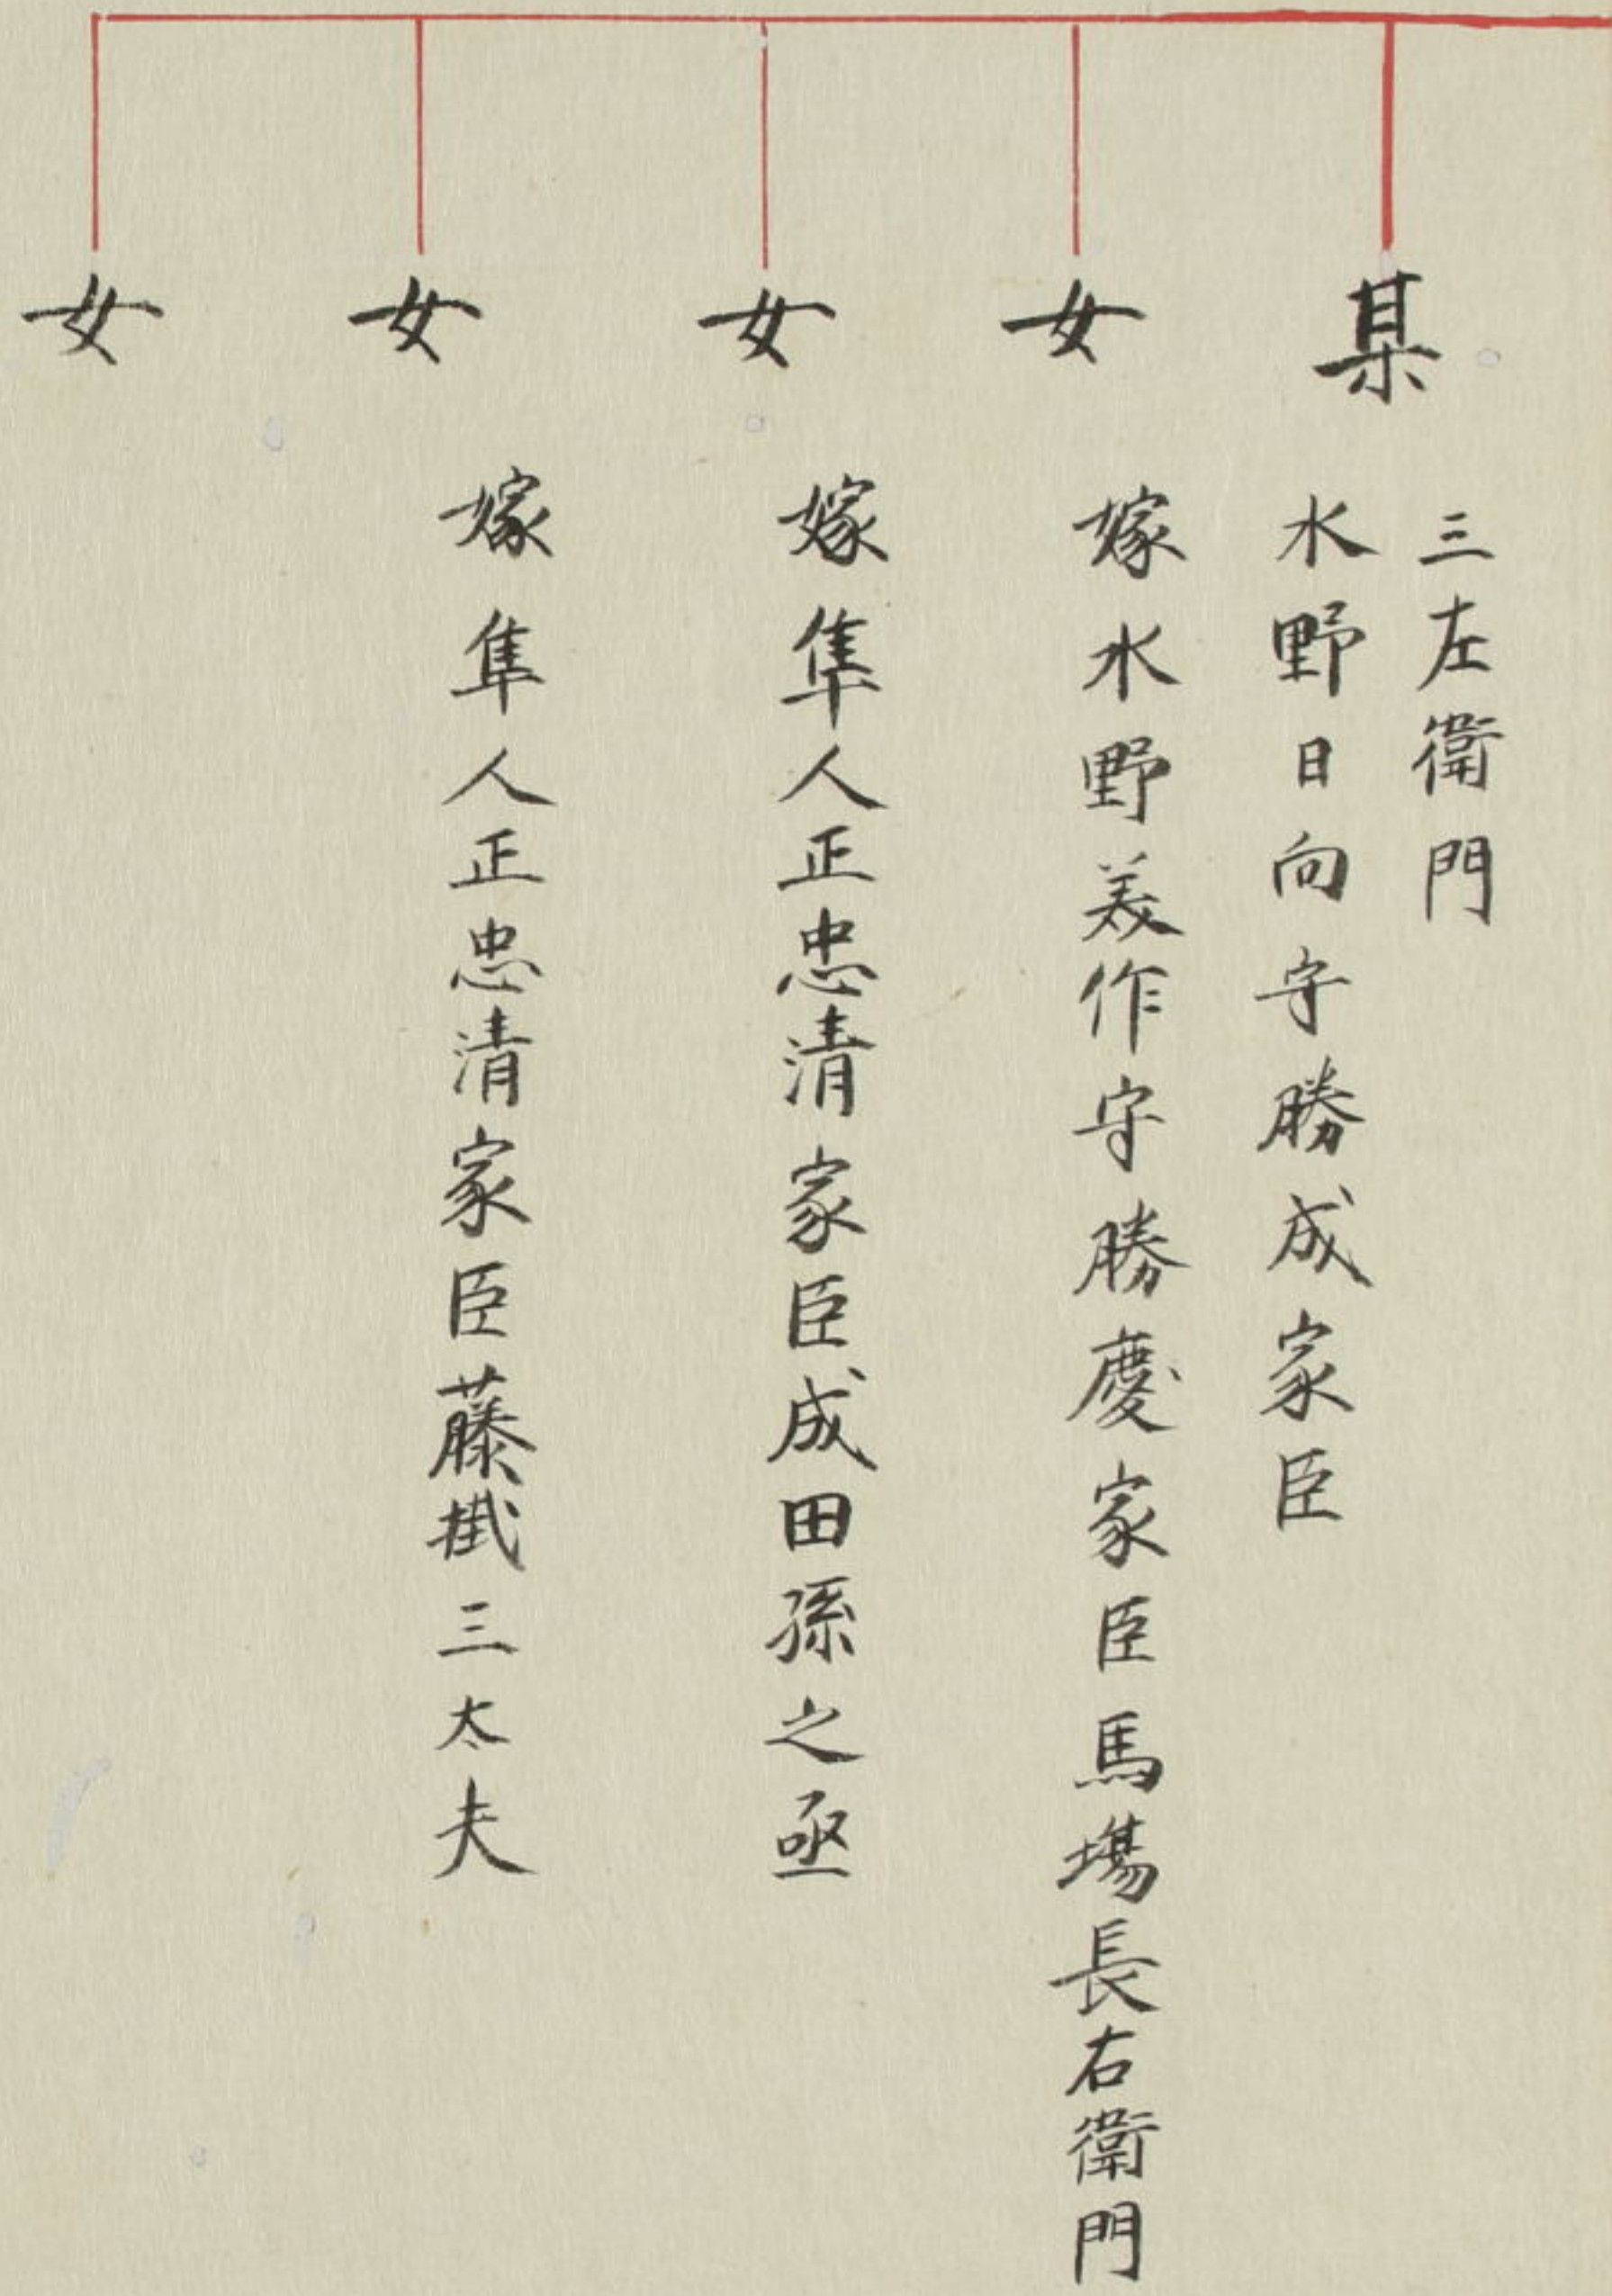 某
三左衛門
水野日向守勝成家臣
女
嫁水野美作守勝慶家臣馬場長右衛門
女
嫁隼人正忠清家臣成田孫之丞
女
嫁隼人正忠清家臣藤掛三太夫
女